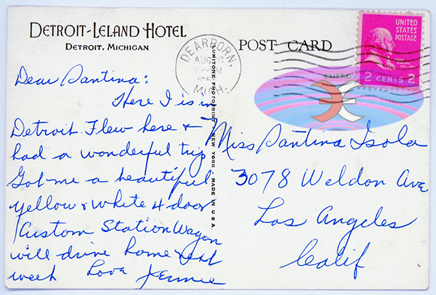 DETROIT-LELAND HOTEL
DETROIT, MICHIGAN
POST CARD
DEARBORN,
AUG
MICH.
UNITED
STATES
POSTAGE
2 CENTS 2
NEW YORK · MADE IN U.S.A.
Dear Santina:
Here I is in
Detroit Flew here &
had a wonderful trip
Got me a beautiful
yellow & white 4 door
Custom Station Wagon
will drive home next
week Love Jennie
Miss Santina Isola
3078 Weldon Ave
Los Angeles
Calif